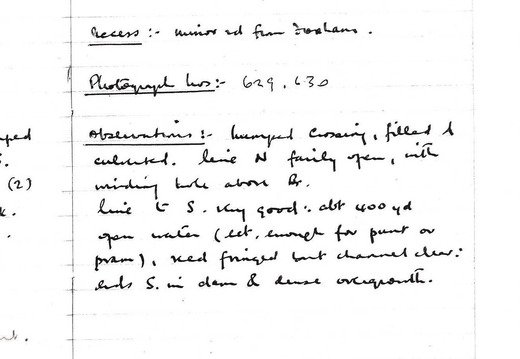 Access :- minor rd from
Photograph Nos:- 629, 630
Observations :- humped crossing, filled &
culverted. line N fairly open, with
winding hole above Br.
line to S. very good :- abt 400 yd
open water (   enough for punt or
pram), reed fringed but channel clear :-
ends S. in dam & dense overgrowth.
(2)